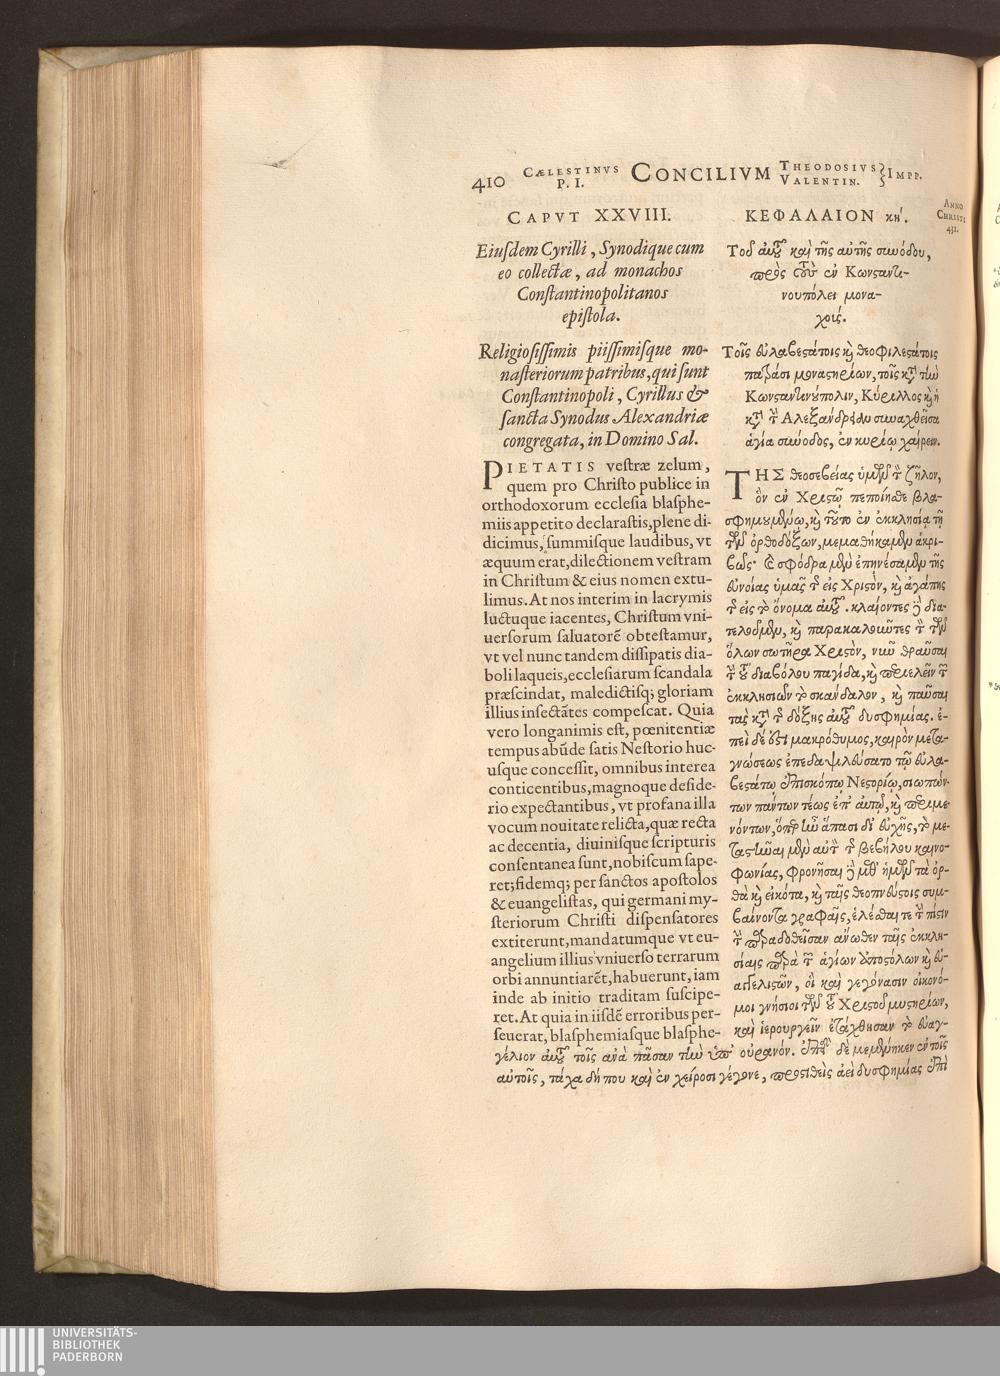 410 CÆLESTINVS P. I. CONCILIVM THEODOSIVS VALENTIN. } IMPP.
ANNO
CHRISTI
431.
CAPVT XXVIII.
Eiuſdem Cyrilli, Synodique cum
eo collectæ, ad monachos
Conſtantinopolitanos
epiſtola.
Religioſiſſimis piiſſimiſque mo-
naſteriorum patribus, qui ſunt
Conſtantinopoli, Cyrillus &
ſancta Synodus Alexandriæ
congregata, in Domino Sal.
PIETATIS veſtræ zelum,
quem pro Chriſto publice in
orthodoxorum eccleſia blaſphe-
miis appetito declaraſtis, plene di-
dicimus, ſummiſque laudibus, vt
æquum erat, dilectionem veſtram
in Chriſtum & eius nomen extu-
limus. At nos interim in lacrymis
luctuque iacentes, Chriſtum vni-
uerſorum ſaluatorē obteſtamur,
vt vel nunc tandem diſſipatis dia-
boli laqueis, eccleſiarum ſcandala
præſcindat, maledictiſq; gloriam
illius inſectātes compeſcat. Quia
vero longanimis eſt, pœnitentiæ
tempus abūde ſatis Neſtorio huc-
uſque conceſſit, omnibus interea
conticentibus, magnoque deſide-
rio expectantibus, vt profana illa
vocum nouitate relicta, quæ recta
ac decentia, diuiniſque ſcripturis
conſentanea ſunt, nobiſcum ſape-
ret; fidemq; per ſanctos apoſtolos
& euangeliſtas, qui germani my-
ſteriorum Chriſti diſpenſatores
extiterunt, mandatumque vt eu-
angelium illius vniuerſo terrarum
orbi annuntiarēt, habuerunt, iam
inde ab initio traditam ſuſcipe-
ret. At quia in iiſdē erroribus per-
ſeuerat, blaſphemiaſque blaſphe-
ΚΕΦΑΛΑΙΟΝ κη΄.
Τοῦ αὐτοῦ καὶ τῆς αὐτῆς συνόδου,
πρὸς τοὺς ἐν Κωνσταντι-
νουπόλει μονα-
χούς.
Τοῖς εὐλαβεστάτοις καὶ θεοφιλεστάτοις
πατράσι μοναστηρίων, τοῖς κατὰ τὴν
Κωνσταντινούπολιν, Κύριλλος καὶ ἡ
κατὰ τὴν Ἀλεξάνδρειαν συναχθεῖσα
ἁγία σύνοδος, ἐν κυρίῳ χαίρειν.
ΤΗΣ θεοσεβείας ὑμῶν τὸν ζῆλον,
ὃν ἐν Χριστῷ πεποίησθε βλα-
σφημουμένῳ, καὶ τοῦτο ἐν ἐκκλησίᾳ τῇ
τῶν ὀρθοδόξων, μεμαθήκαμεν ἀκρι-
βῶς· καὶ σφόδρα μὲν ἐπῃνέσαμεν τῆς
εὐνοίας ὑμᾶς τῆς εἰς Χριστὸν, καὶ ἀγάπης
τῆς εἰς τὸ ὄνομα αὐτοῦ. κλαίοντες δὲ δια-
τελοῦμεν, καὶ παρακαλοῦντες τὸν τῶν
ὅλων σωτῆρα Χριστὸν, νῦν θραῦσαι
τὴν τοῦ διαβόλου παγίδα, καὶ περιελεῖν τῶν
ἐκκλησιῶν τὸ σκάνδαλον, καὶ παῦσαι
τὰς κατὰ τῆς δόξης αὐτοῦ δυσφημίας. ἐ-
πεὶ δέ ἐστι μακρόθυμος, καιρὸν μετα-
γνώσεως ἐπεδαψιλεύσατο τῷ εὐλα-
βεστάτῳ ἐπισκόπῳ Νεστορίῳ, σιωπών-
των πάντων τέως ἐπ' αὐτῷ, καὶ περιμε-
νόντων, ὅπερ ἦν ἅπασι δι' εὐχῆς, τὸ με-
ταστῆναι μὲν αὐτὸν τῆς βεβήλου καινο-
φωνίας, φρονῆσαι δὲ μεθ' ἡμῶν τὰ ὀρ-
θὰ καὶ εἰκότα, καὶ ταῖς θεοπνεύστοις συμ-
βαίνοντα γραφαῖς, ἑλέσθαι τε τὴν πίστιν
τὴν παραδοθεῖσαν ἄνωθεν ταῖς ἐκκλη-
σίαις παρὰ τῶν ἁγίων ἀποστόλων καὶ εὐ-
αγγελιστῶν, οἳ καὶ γεγόνασιν οἰκονό-
μοι γνήσιοι τῶν τοῦ Χριστοῦ μυστηρίων,
καὶ ἱερουργεῖν ἐτάχθησαν τὸ εὐαγ-
γέλιον αὐτοῦ τοῖς ἀνὰ πᾶσαν τὴν ὑπ' οὐρανόν. ἐπειδὴ δὲ μεμένηκεν ἐν τοῖς
αὐτοῖς, τάχα δή που καὶ ἐν χείροσι γέγονε, προστιθεὶς ἀεὶ δυσφημίας ἐπὶ
UNIVERSITÄTS-
BIBLIOTHEK
PADERBORN